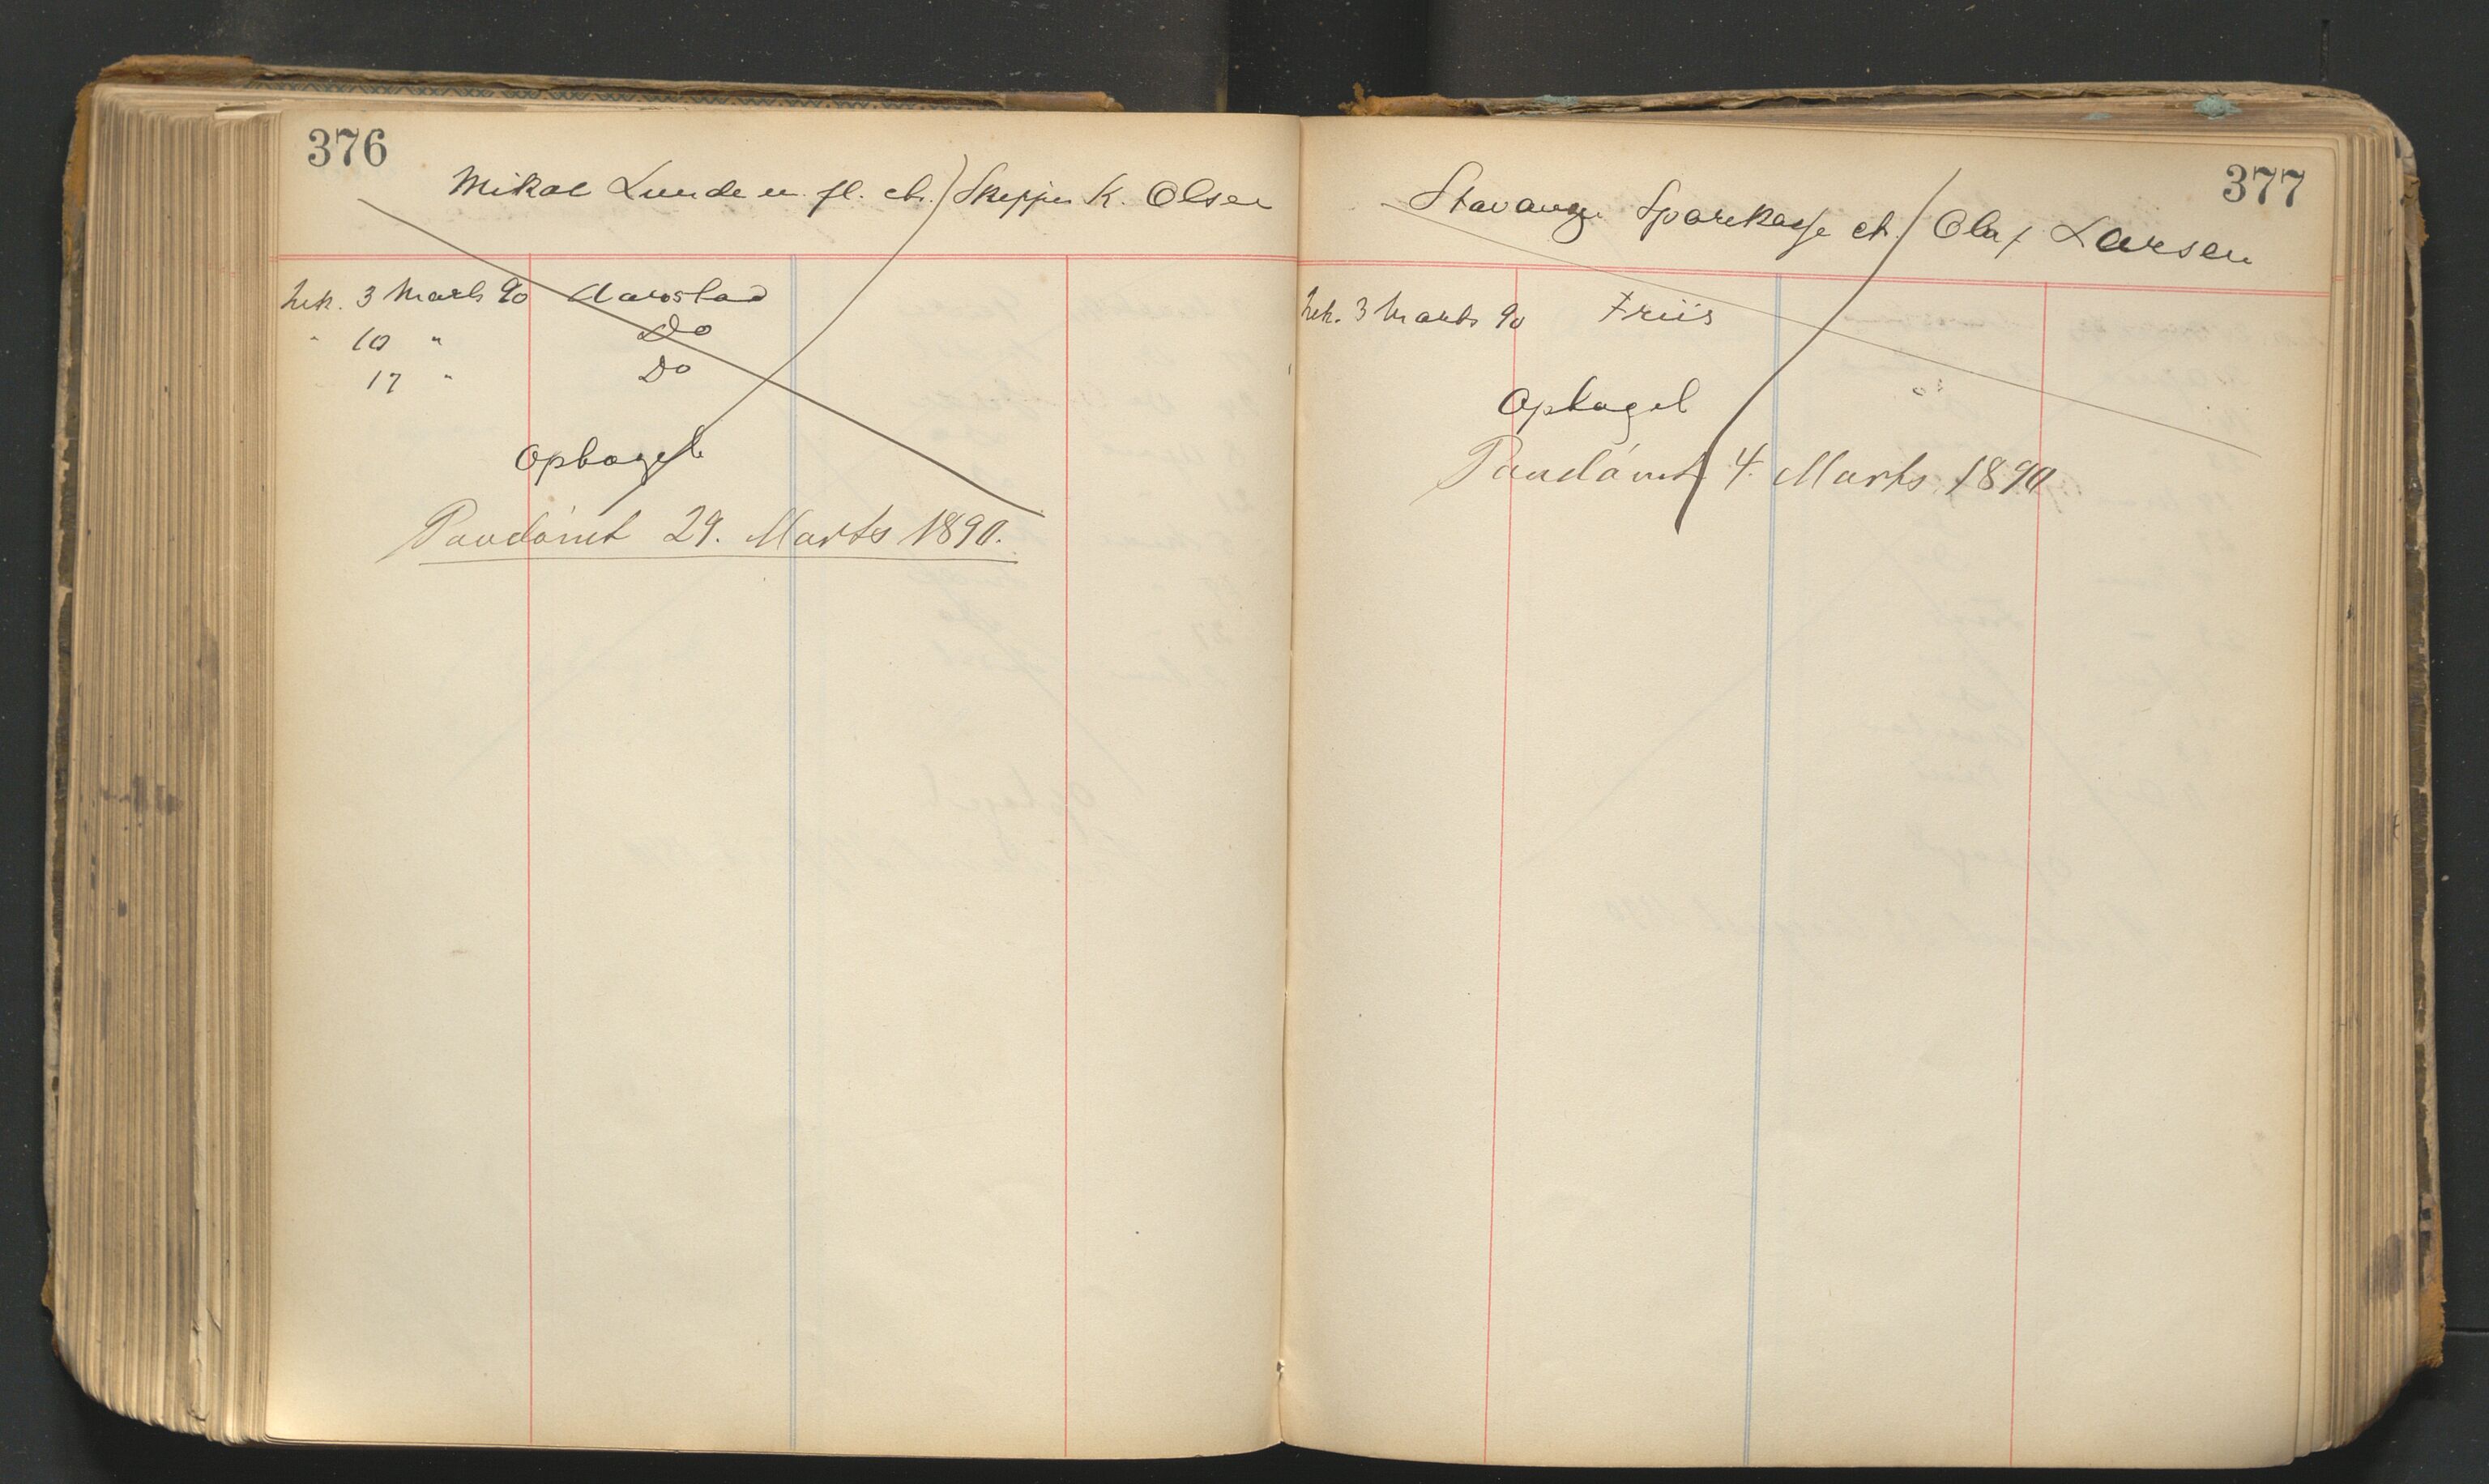 376
Mikal Lunde m. fl. ctr. Skipper K. Olsen
3 Marts 90 Aarstad
" 10 " Do
17 " Do
Optaget
Paadömt 29. Marts 1890.
377
Stavanger Sparekasse ctr. Olaf Larsen
3 Marts 90 Friis
Optaget
Paadömt 4. Marts 1890